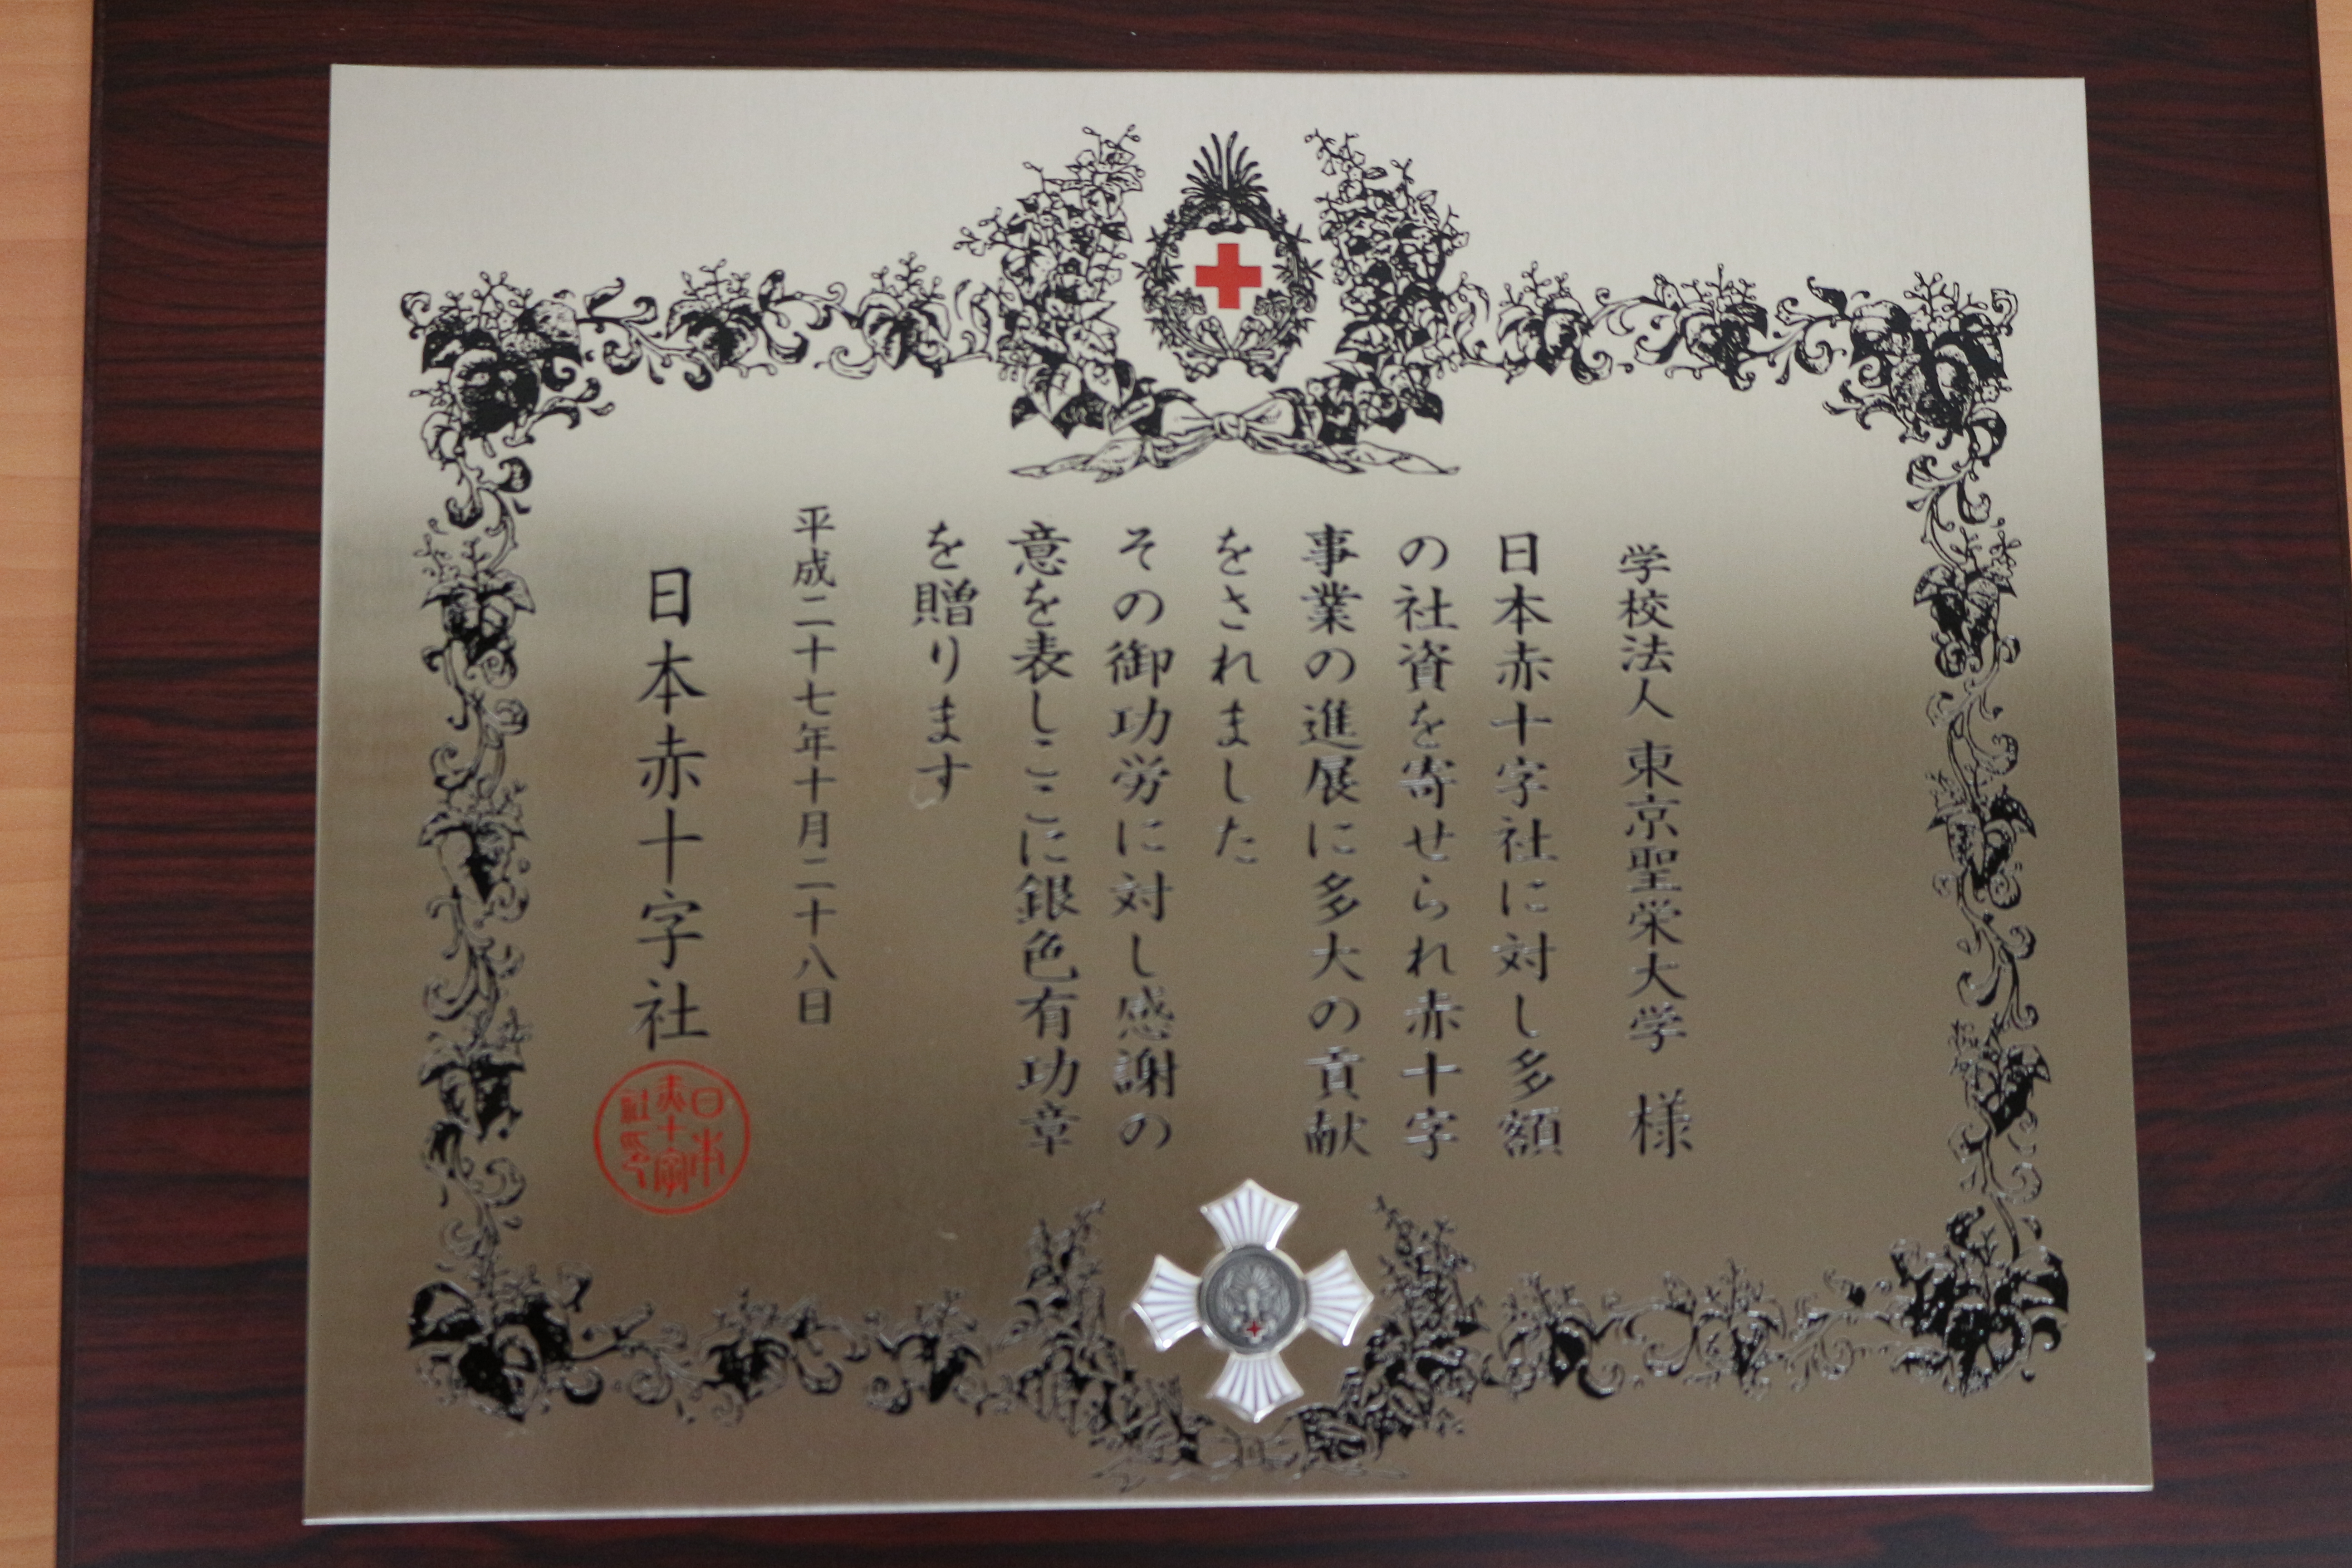 学校法人 東京聖栄大学 様
日本赤十字社に対し多額
の社資を寄せられ赤十字
事業の進展に多大の貢献
をされました
その御功労に対し感謝の
意を表しここに銀色有功章
を贈ります
平成二十七年十月二十八日
日本赤十字社
日本赤十字社印